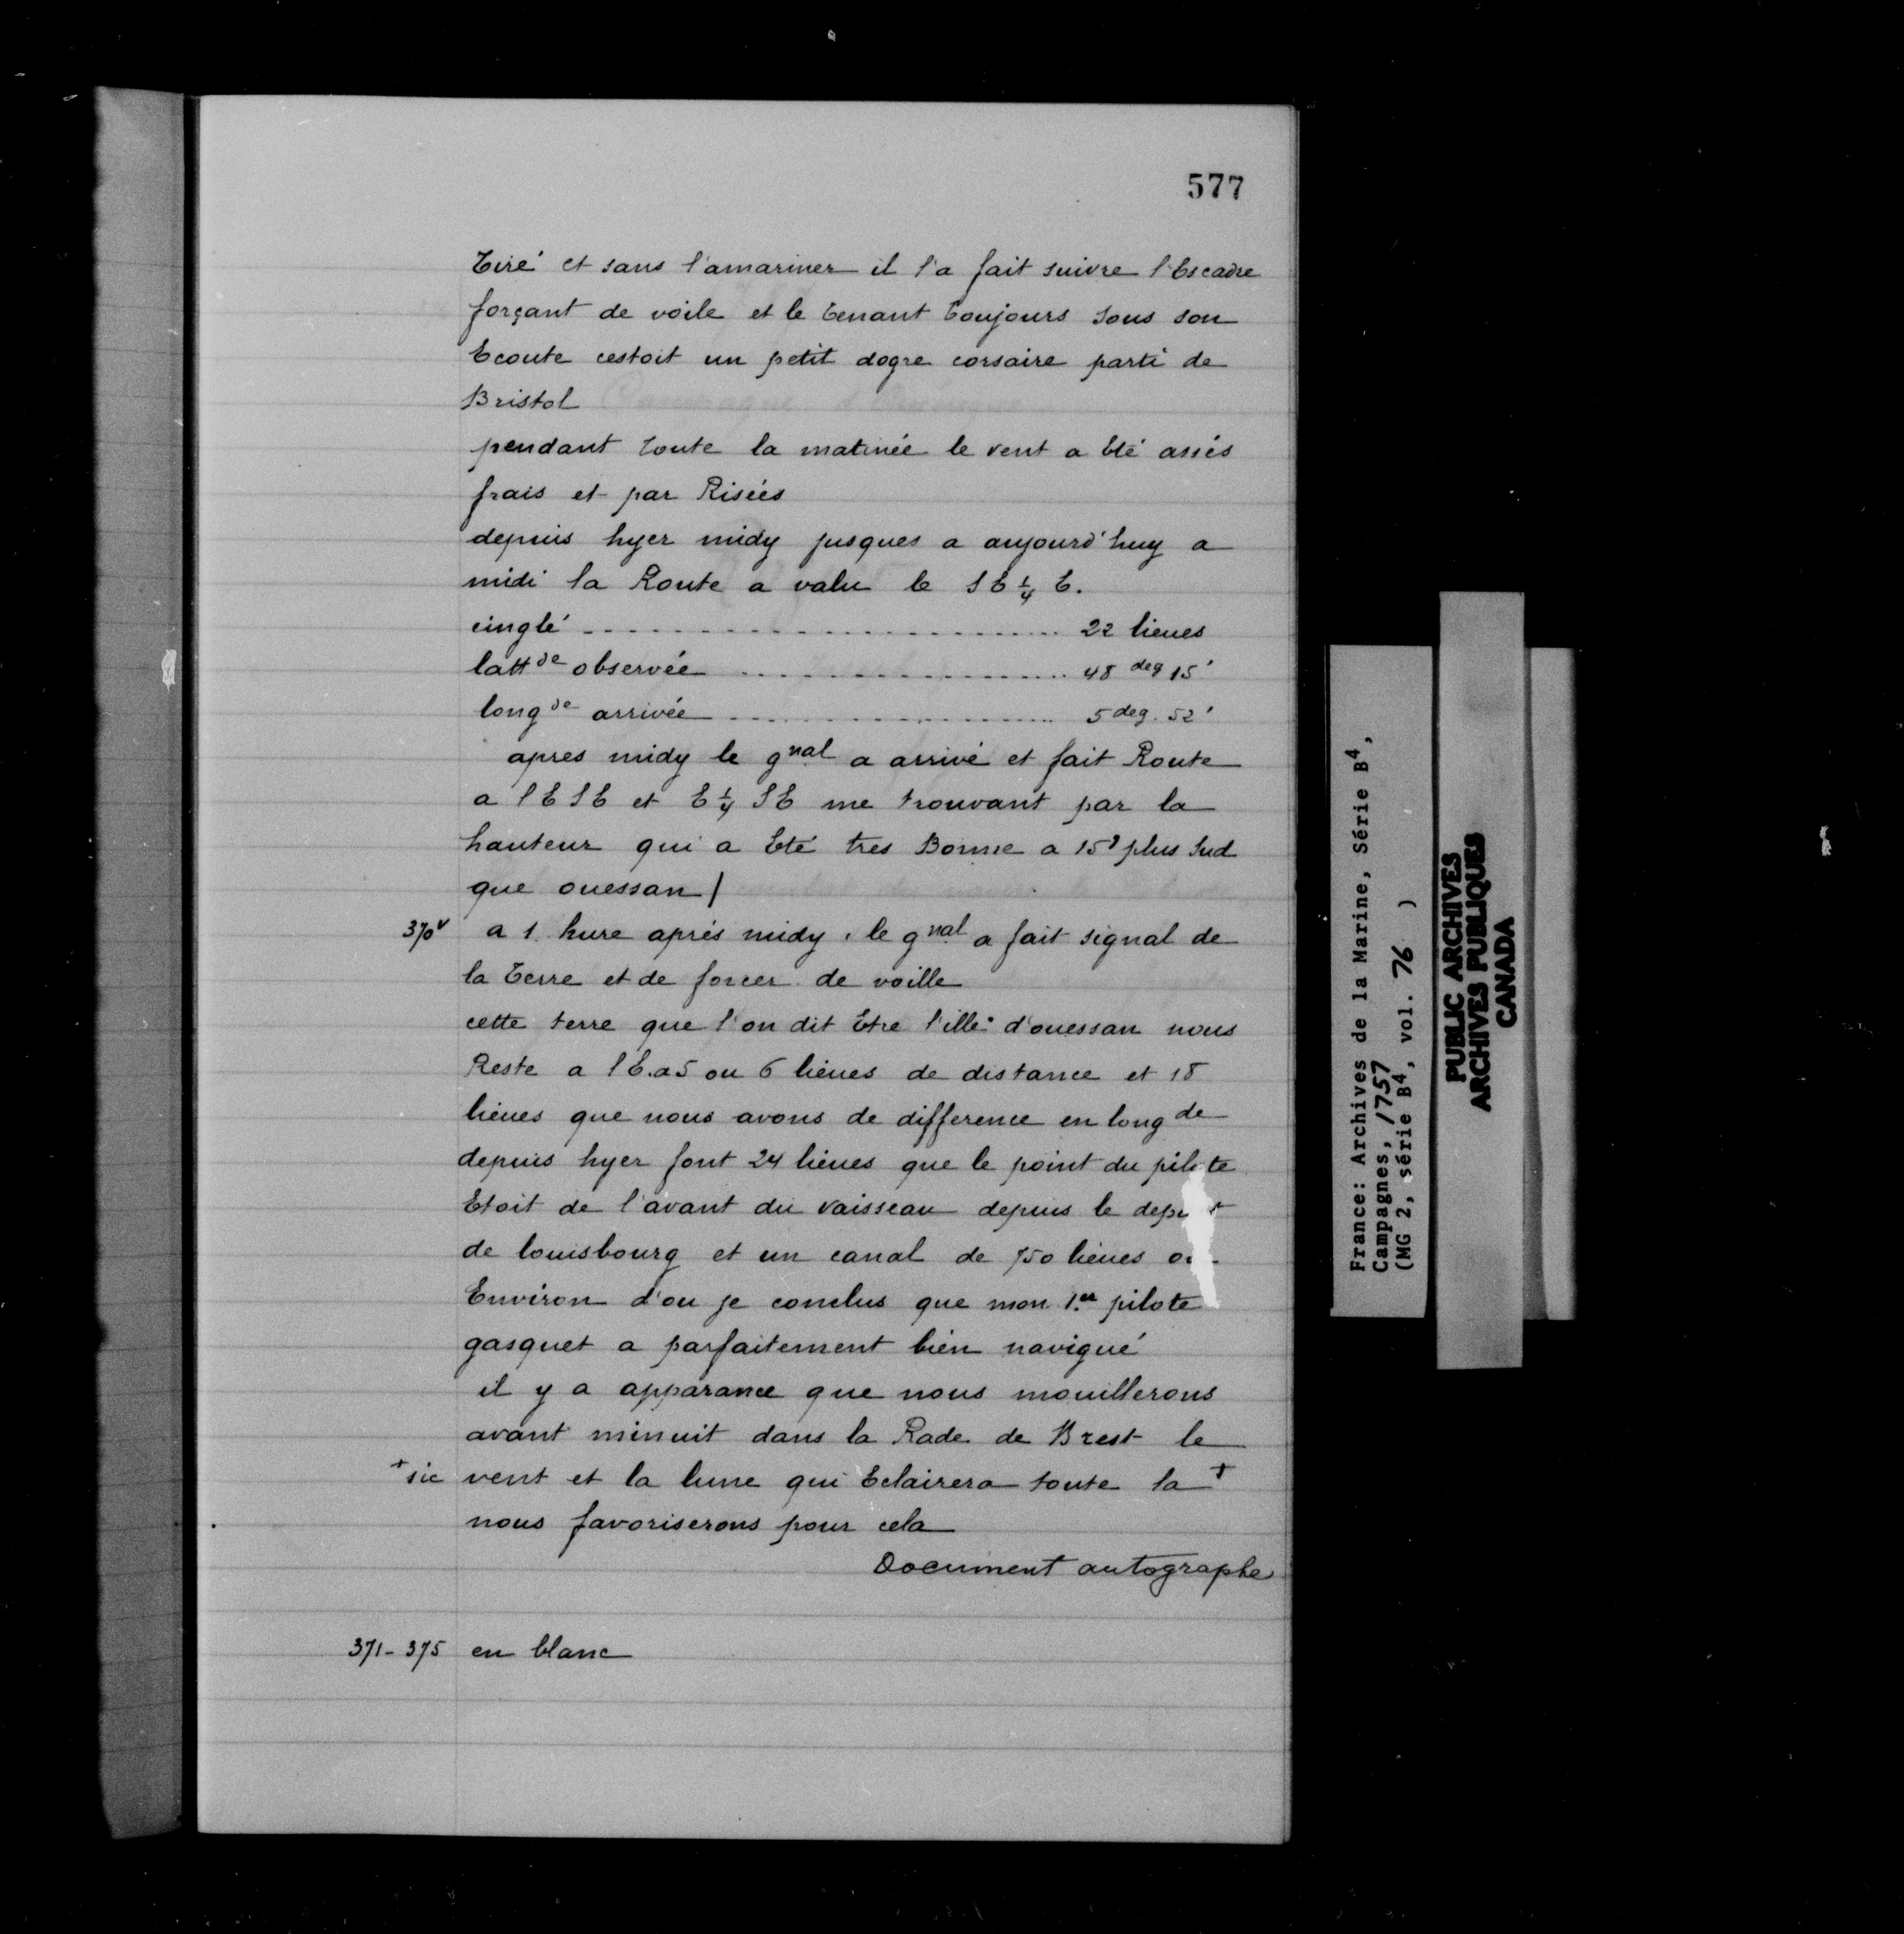 577
Tiré et sans l'amariner il l'a fait suivre l'Escadre
forçant de voile et le Tenant Toujours sous son
Ecoute cestoit un petit dogre corsaire parti de
Bristol
pendant toute la matinée le vent a Eté assés
frais et par Risées
depuis hyer midy jusques a aujourd'huy a
midi la Route a valu le SE 1/4 E.
cinglé .......................... 22 lieues
latt de observée .................. 48 deg 15'
long de arrivée .................. 5 deg. 52'
apres midy le gnal a arrivé et fait Route
a l'ESE et E 1/4 SE me trouvant par la
hauteur qui a Eté tres Bonne a 15' plus Sud
que ouessan /
370v a 1 hure aprés midy, le gnal a fait signal de
la Terre et de forcer de voille
cette terre que l'on dit Etre l'ille d'ouessan nous
Reste a l'E. a 5 ou 6 lieues de distance et 18
lieues que nous avons de difference en long de
depuis hyer font 24 lieues que le point du pilote
Etoit de l'avant du vaisseau depuis le depart
de louisbourg et un canal de 750 lieues ou
Environ d'ou je conclus que mon 1.er pilote
gasquet a parfaitement bien navigué
il y a apparance que nous mouillerons
avant minuit dans la Rade de Brest le
+ sic vent et la lune qui Eclairera toute la +
nous favoriserons pour cela
Document autographe
371-375 en blanc
France: Archives de la Marine, Série B4,
Campagnes, 1757
(MG 2, série B4, vol. 76 )
PUBLIC ARCHIVES
ARCHIVES PUBLIQUES
CANADA